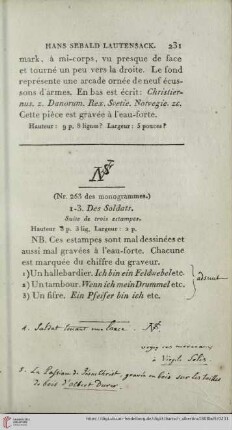 HANS SEBALD LAUTENSACK. 231
mark, à mi-corps, vu presque de face
et tourné un peu vers la droite. Le fond
représente une arcade ornée de neuf écus-
sons d'armes. En bas est écrit: Christier-
nus. 2. Danorum. Rex. Svetie. Norvegie. 2c.
Cette pièce est gravée à l'eau-forte.
Hauteur: 9 p. 8 lignes? Largeur: 5 pouces?
(Nr. 263 des monogrammes.)
1-3. Des Soldats.
Suite de trois estampes.
Hauteur 3 p. 3 lig, Largeur: 2 p.
NB. Ces estampes sont mal dessinées et
aussi mal gravées à l'eau-forte. Chacune
est marquée du chiffre du graveur.
1) Un hallebardier. Ich bin ein Feldwebel etc.
2) Un tambour. Wenn ich mein Drummel etc.
3) Un fifre. Ein Pfeifer bin ich etc.
4. Soldat tenant une lance.
à Virgile Solis.
5. La Passion de Jesus Christ, gravée en bois sur les tailles
de bois d'Albert Durer.